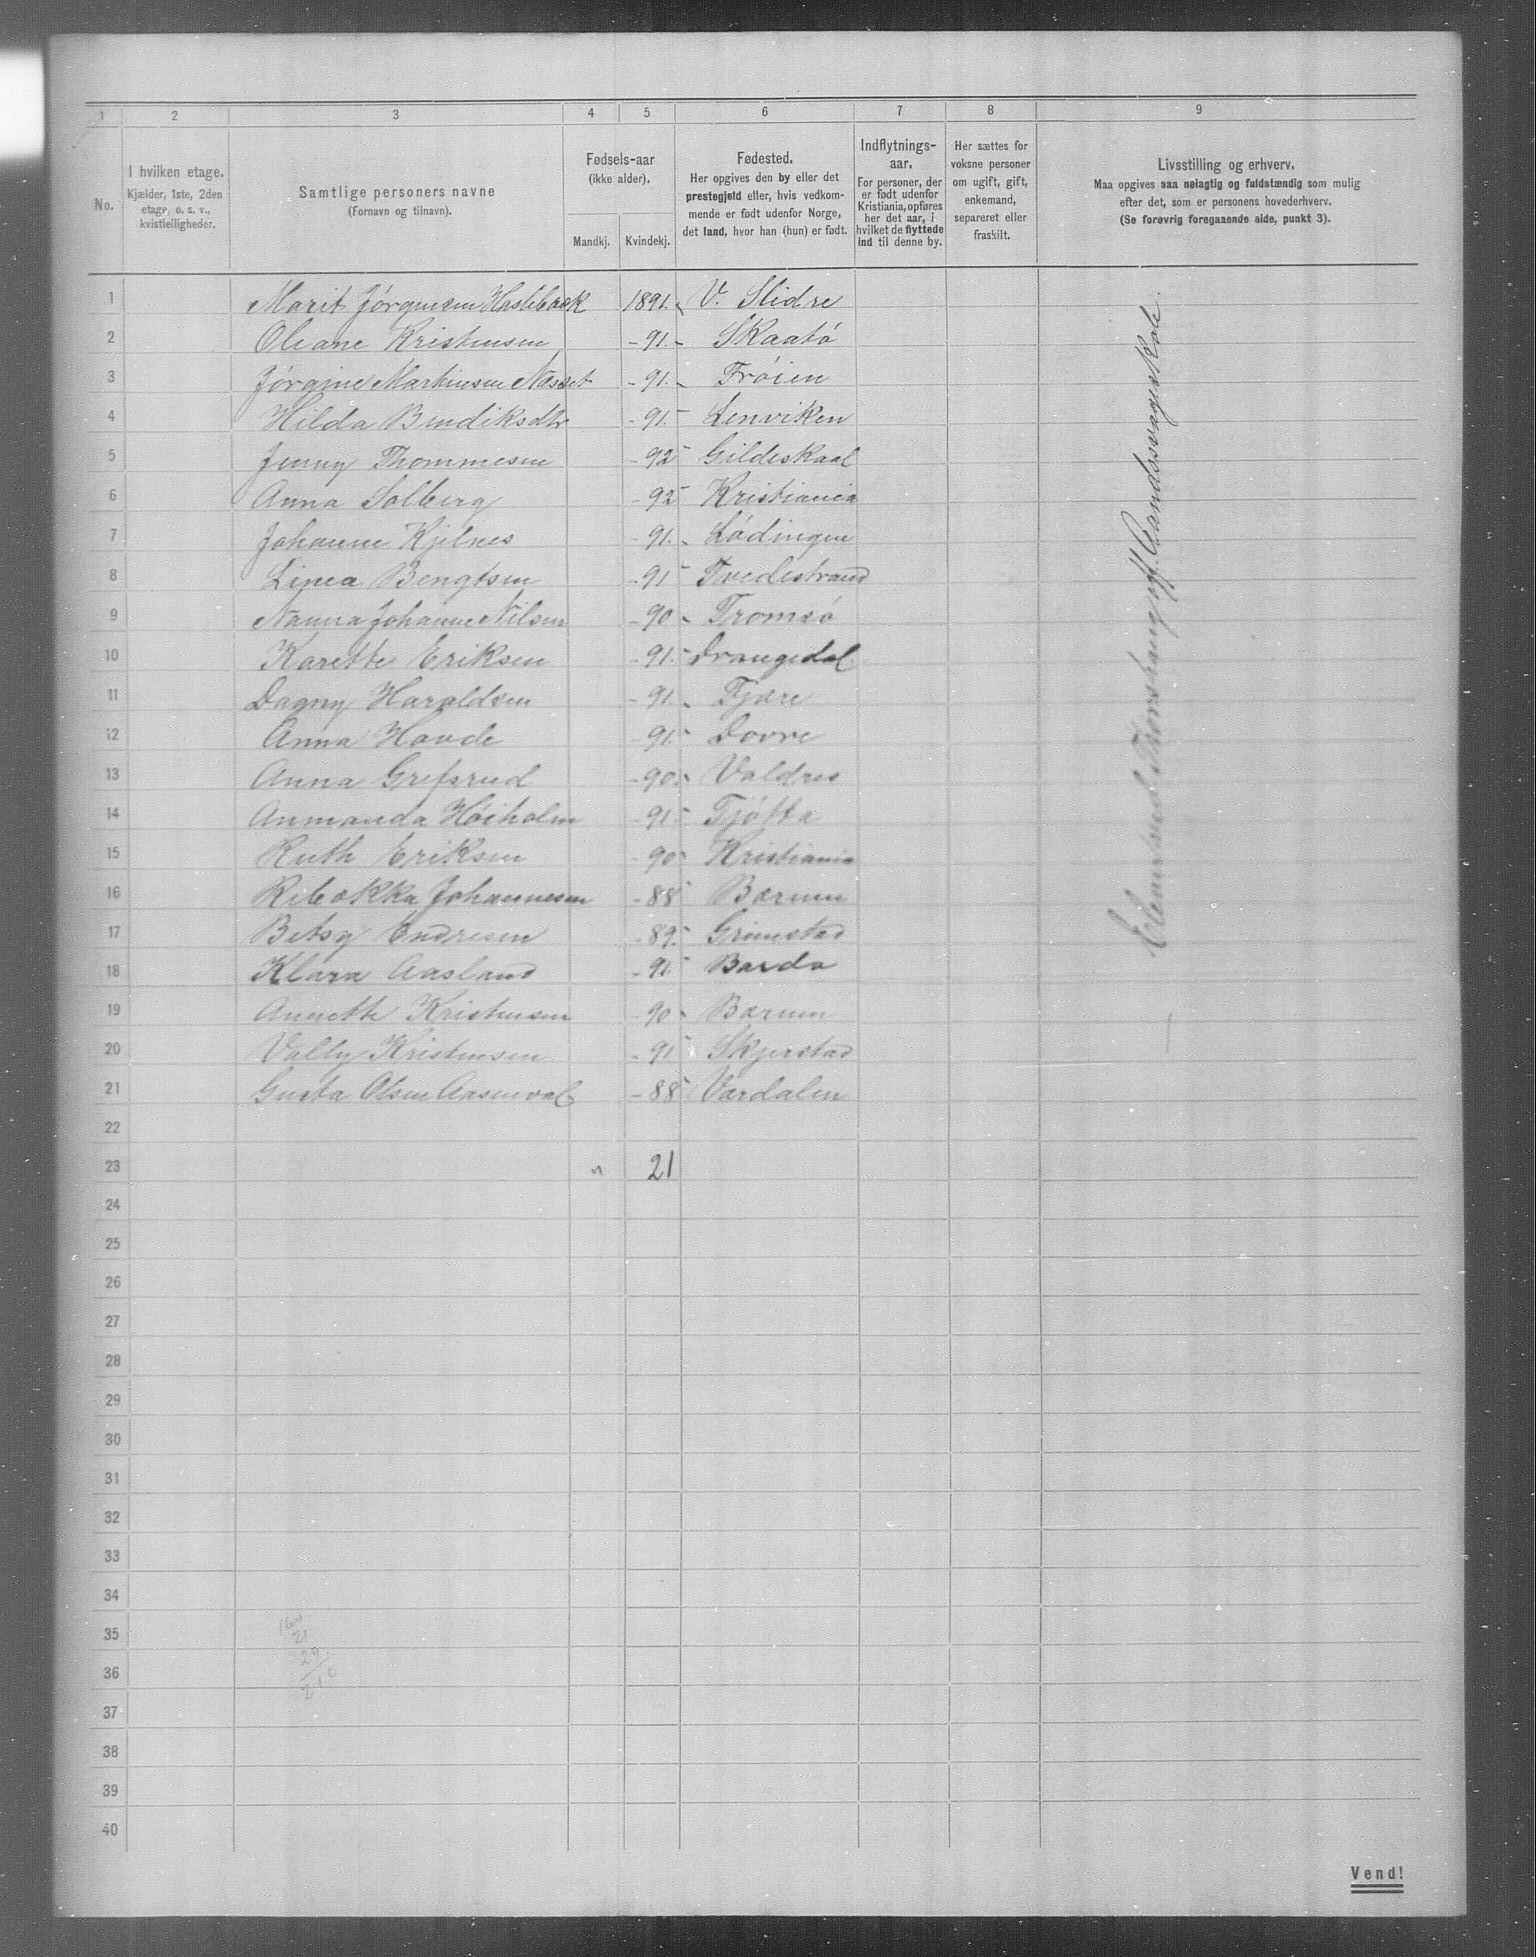 1 2 3 4 5 6 7 8 9
No.
I hvilken etage.
Kjælder, 1ste, 2den
etage, o. s. v.,
kvistleiligheder.
Samtlige personers navne
(Fornavn og tilnavn).
Fødsels-aar
(ikke alder).
Mandkj. Kvindekj.
Fødested.
Her opgives den by eller det
prestegjeld eller, hvis vedkom-
mende er født udenfor Norge,
det land, hvor han (hun) er født.
Indflytnings-
aar.
For personer, der
er født udenfor
Kristiania, opføres
her det aar, i
hvilket de flyttede
ind til denne by.
Her sættes for
voksne personer
om ugift, gift,
enkemand,
separeret eller
fraskilt.
Livsstilling og erhverv.
Maa opgives saa nøiagtig og fuldstændig som mulig
efter det, som er personens hovederhverv.
(Se forøvrig foregaaende side, punkt 3).
1 Marit Jørgensen Haslebræk 1891. V. Slidre
2 Oleane Kristensen - 91. Skaatø
3 Jørgine Martinsen Næsset - 91. Trøien
4 Hilda Bendiksdtr - 91. Lenviken
5 Jenny Thommesen - 92 Gildeskaal
6 Anna Solberg - 92 Kristiania
7 Johanne Kjelnes - 91. Lødingen
8 Linea Bengtsen - 91 Tvedestrand
9 Nanna Johanne Nilsen - 90 Tromsø
10 Karette Eriksen - 91. Drangedal
11 Dagny Haraldsen - 91. Fjære
12 Anna Hovde - 91. Dovre
13 Anna Grefsrud - 90. Valdres
14 Anmanda Høiholm - 91. Tjøtta
15 Ruth Eriksen - 90 Kristiania
16 Rebækka Johannesen - 88 Bærum
17 Betsy Endresen - 89. Grimstad
18 Klara Aasland - 91. Bardo
19 Annette Kristensen - 90 Bærum
20 Valby Kristensen - 91 Skjerstad
21 Gusta Olsen Aasenval - 88 Værdalen
22
23 " 21
24
25
26
27
28
29
30
31
32
33
34
35
36
37
38
39
40
Elev ved off. Aandssvageskole.
21
29
Vend!